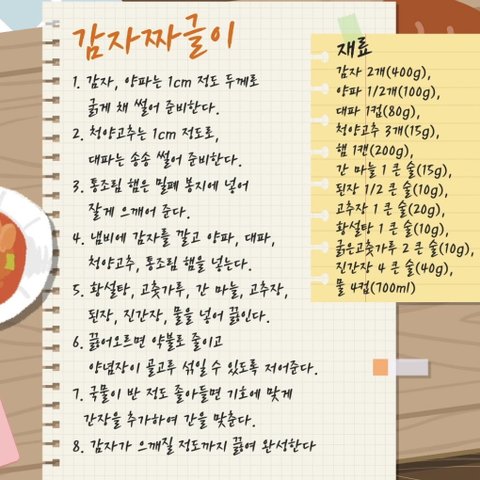 감자짜글이
1. 감자, 양파는 1cm 정도 두께로
굵게 채 썰어 준비한다.
2. 청양고추는 1cm 정도로,
대파는 송송 썰어 준비한다.
3. 통조림 햄은 밀폐 봉지에 넣어
잘게 으깨어 준다.
4. 냄비에 감자를 깔고 양파, 대파,
청양고추, 통조림 햄을 넣는다.
5. 황설탕, 고춧가루, 간 마늘, 고추장,
된장, 진간장, 물을 넣어 끓인다.
6. 끓어오르면 약불로 줄이고
양념장이 골고루 섞일 수 있도록 저어준다.
7. 국물이 반 정도 졸아들면 기호에 맞게
간장을 추가하여 간을 맞춘다.
8. 감자가 으깨질 정도까지 끓여 완성한다
재료
감자 2개(400g),
양파 1/2개(100g),
대파 1컵(80g),
청양고추 3개(15g),
햄 1캔(200g),
간 마늘 1 큰 술(15g),
된장 1/2 큰 술(10g),
고추장 1 큰 술(20g),
황설탕 1 큰 술(10g),
굵은고춧가루 2 큰 술(10g),
진간장 4 큰 술(40g),
물 4컵(700ml)